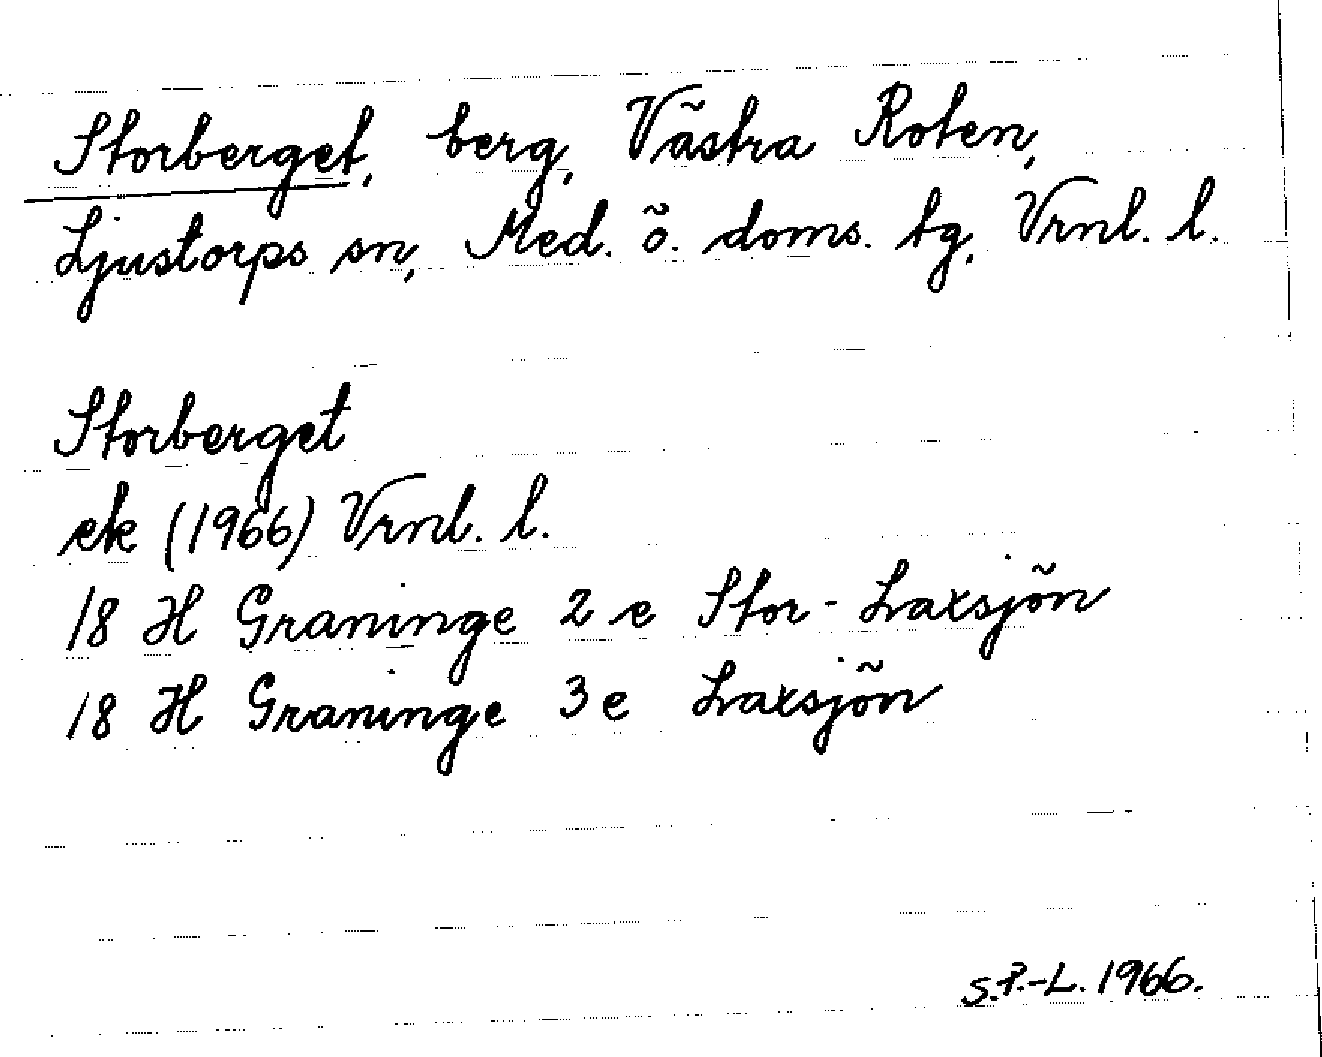 Storberget, berg, Västra Roten,
Ljustorps sn, Med. ö. doms. tg, Vrnl. l.
Storberget
ek (1966) Vrnl. l.
18 H Graninge 2 e Stor-Laxsjön
18 H Graninge 3 e Laxsjön
S.P.-L. 1966.